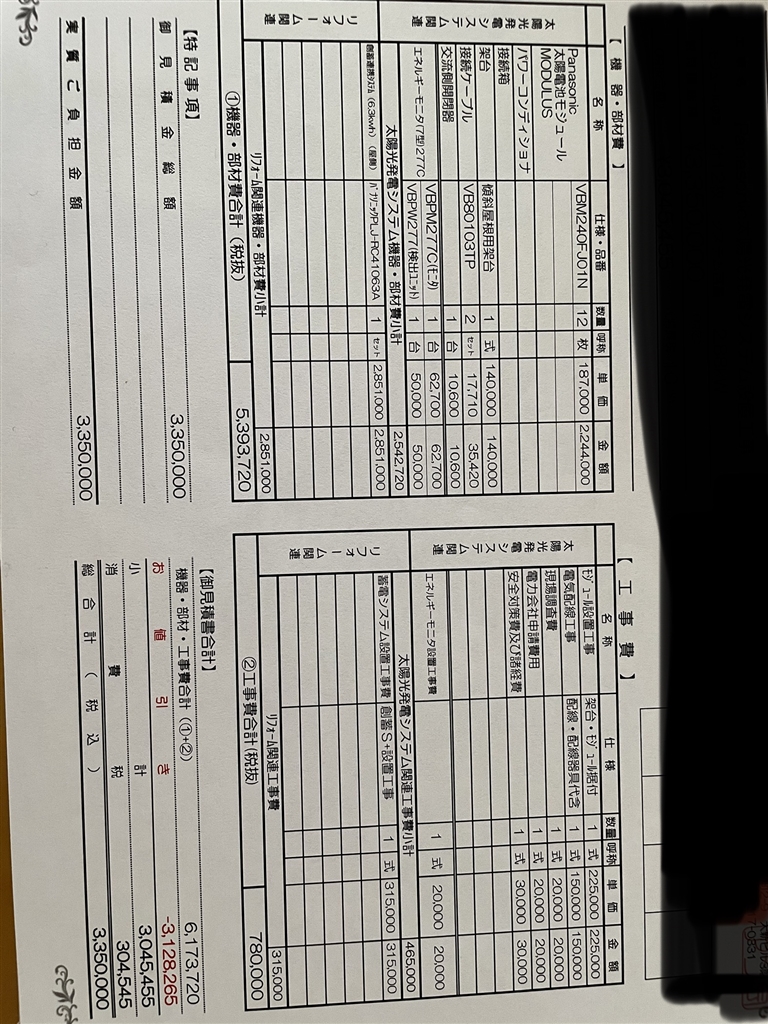 【 機 器 ・ 部 材 費 】
名 称 仕様・品番 数量 呼称 単 価 金 額
太陽光発電システム関連
Panasonic
太陽電池モジュール VBM240FJ01N 12 枚 187,000 2,244,000
MODULUS
パワーコンディショナ
接続箱
架台 傾斜屋根用架台 1 式 140,000 140,000
接続ケーブル VB80103TP 2 セット 17,710 35,420
交流側開閉器 1 台 10,600 10,600
エネルギーモニタ(7型)277C VBPM277C(モニタ) 1 台 62,700 62,700
VBPW277(検出ユニット) 1 台 50,000 50,000
太陽光発電システム機器・部材費小計 2,542,720
リフォーム関連
創蓄連携システム (6.3kwh) (屋側) パナソニックPLJ-RC41063A 1 セット 2,851,000 2,851,000
リフォーム関連機器・部材費小計 2,851,000
①機器・部材費合計(税抜) 5,393,720
【特記事項】
御 見 積 金 総 額 3,350,000
実 質 ご 負 担 金 額 3,350,000
【 工 事 費 】
名 称 仕 様 数量 呼称 単 価 金 額
太陽光発電システム関連
モジュール設置工事 架台・モジュール据付 1 式 225,000 225,000
電気配線工事 配線・配線器具代含 1 式 150,000 150,000
現場調査費 1 式 20,000 20,000
電力会社申請費用 1 式 20,000 20,000
安全対策費及び諸経費 1 式 30,000 30,000
エネルギーモニタ設置工事費 1 式 20,000 20,000
太陽光発電システム関連工事費小計 465,000
リフォーム関連
蓄電システム設置工事費 創蓄S+設置工事 1 式 315,000 315,000
リフォーム関連工事費 315,000
②工事費合計(税抜) 780,000
【御見積書合計】
機器・部材・工事費合計(①+②) 6,173,720
お 値 引 き -3,128,265
小 計 3,045,455
消 費 税 304,545
総 合 計 ( 税 込 ) 3,350,000